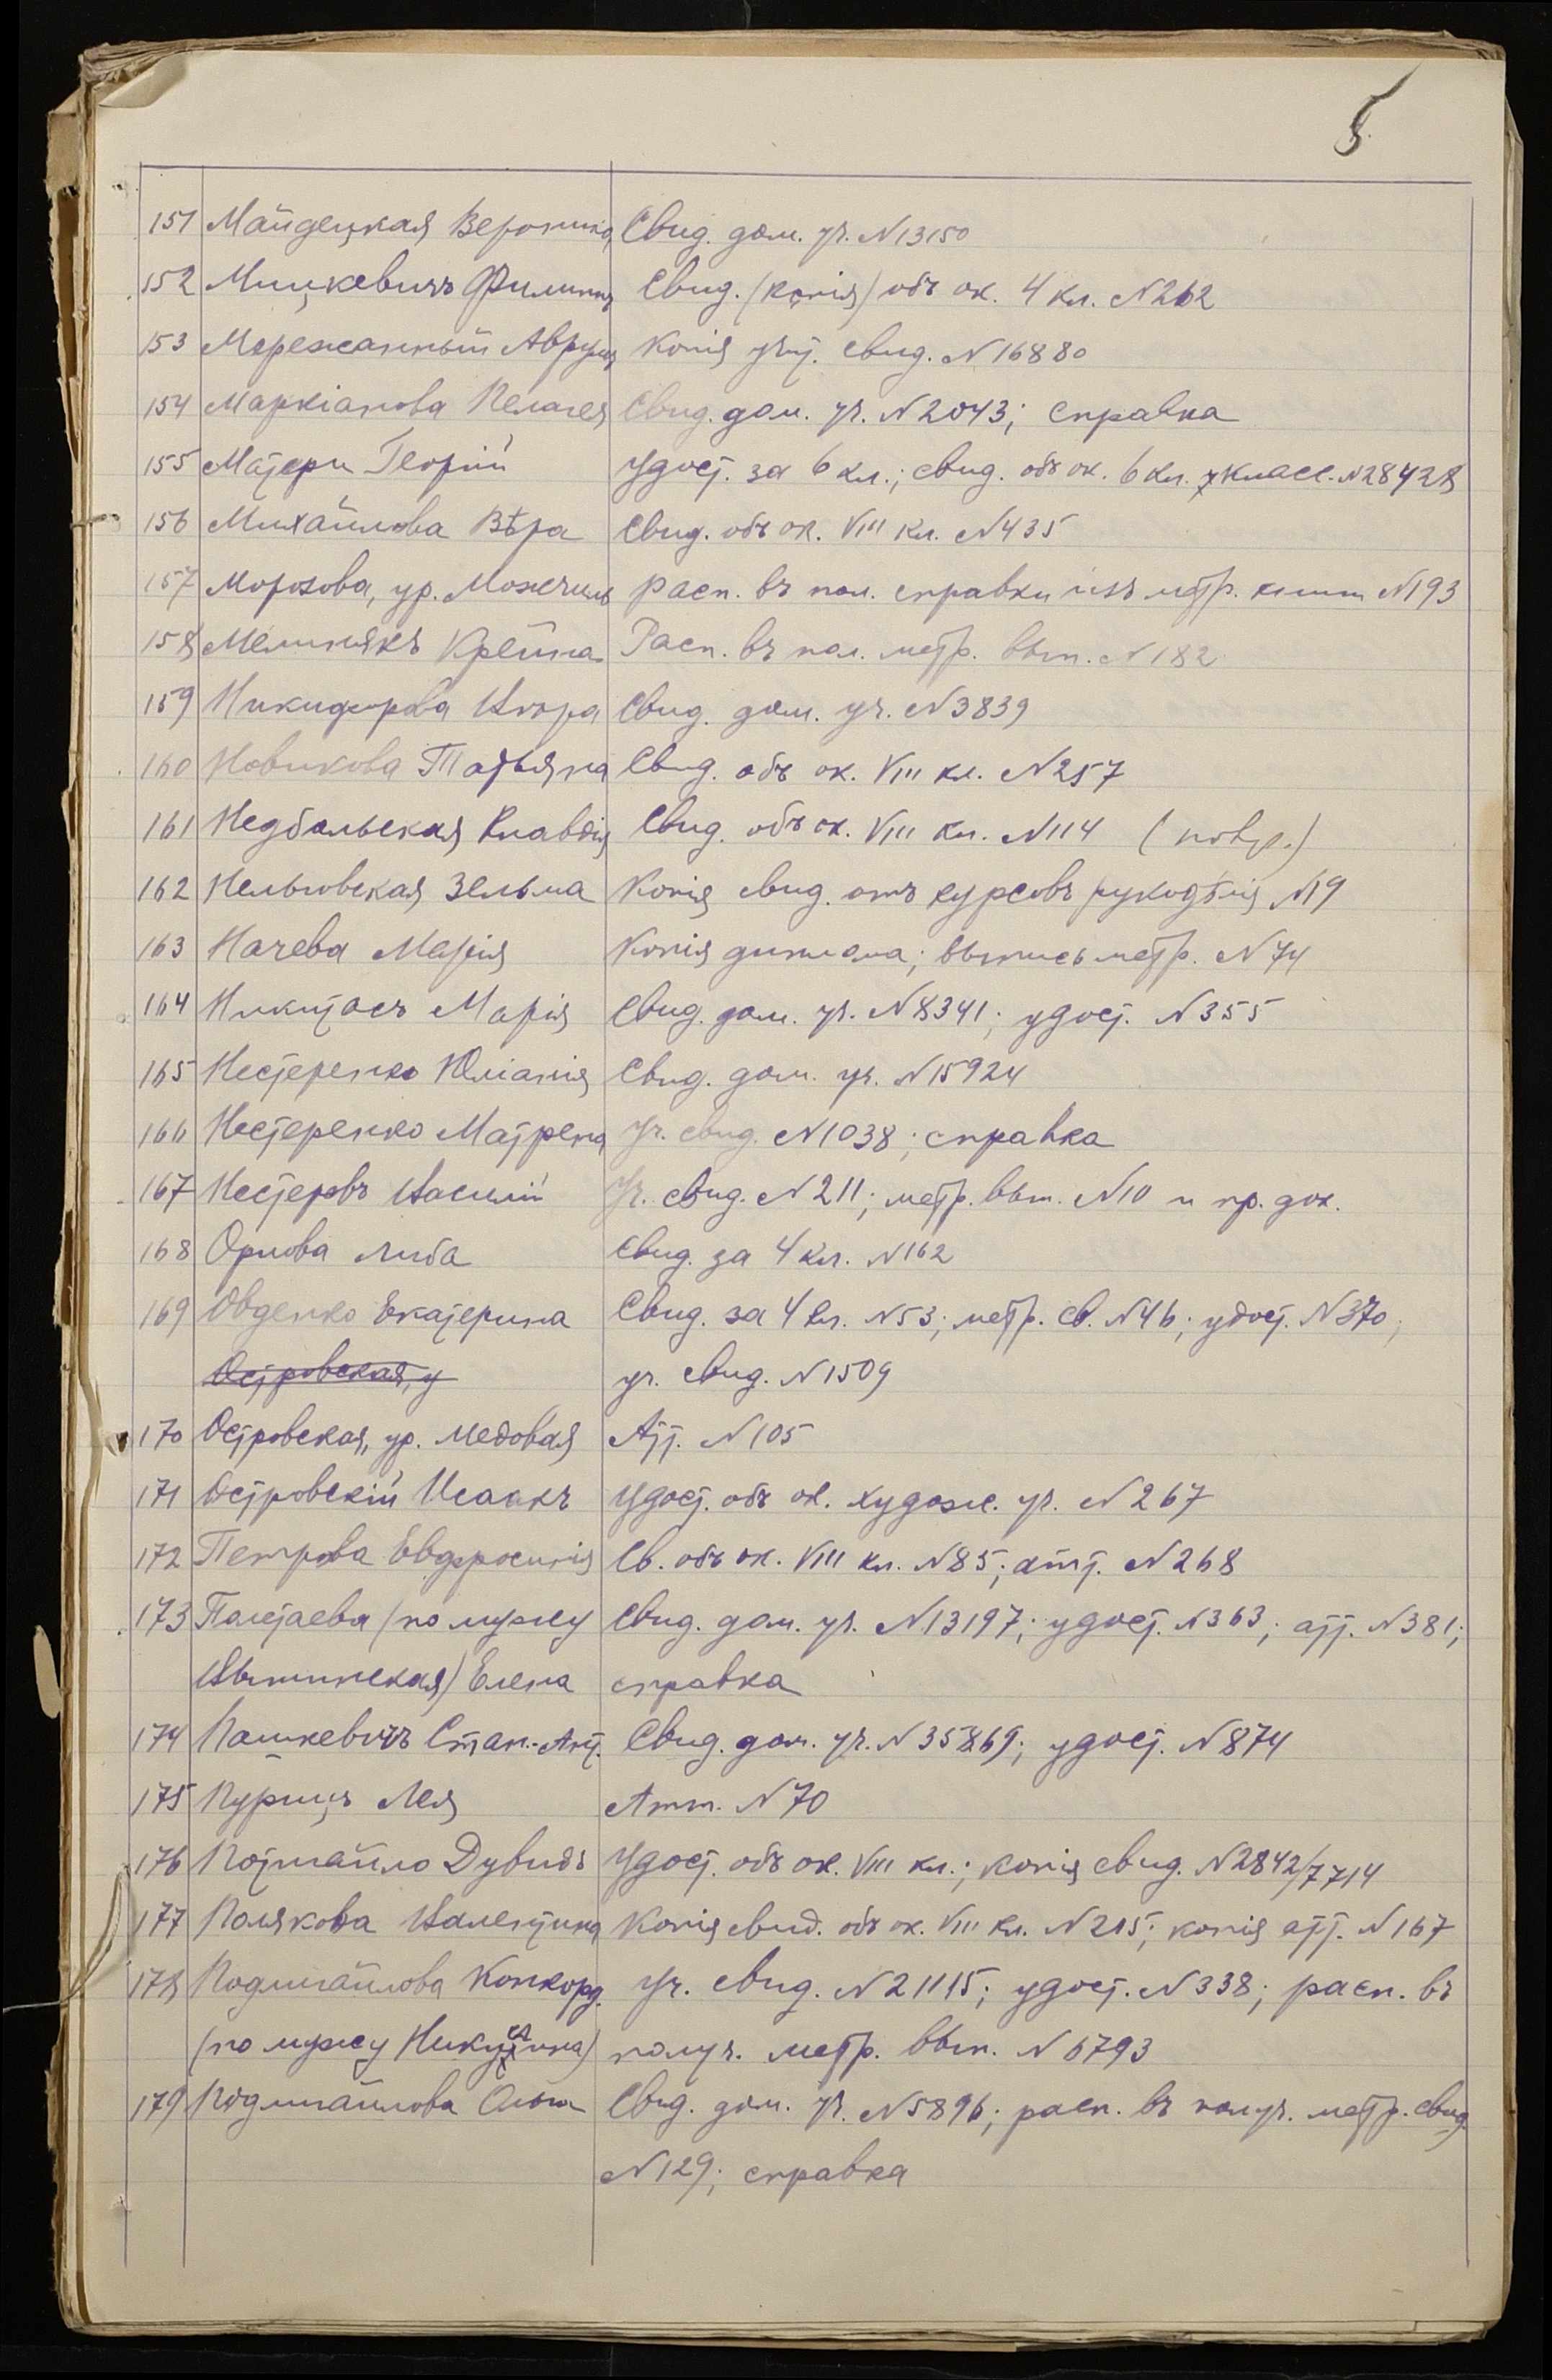 5.
151 Майдецкая Вероника Свид. дом. уч. N 13150
152 Мицкевичъ Филиппъ Свид. (копія) объ ок. 4 кл. N 262
153 Мережанный Аврумъ Копія учит. свид. N 16880
154 Маркіанова Пелагея Свид. дом. уч. N 2043; справка
155 Матери Георгій Удост. за 6 кл.; свид. объ ок. 6 кл. класс. N 28428
156 Михайлова Вѣра Свид. объ ок. VIII кл. N 435
157 Морозова, ур. расп. въ пол. справки изъ метр. книги N 193
158 Мельникъ Крейна Расп. въ пол. метр. вып. N 182
159 Никифорова Свид. дом. уч. N 3839
160 Новикова Татьяна Свид. объ ок. VIII кл. N 257
161 Недбальская Клавдія Свид. объ ок. VIII кл. N 114 (повр.)
162 Зельма Копія свид. отъ курсовъ рукодѣлія N 19
163 Начева Марія Копія диплома; выпись метр. N 74
164 Никитасъ Марія Свид. дом. уч. N 8341; удост. N 355
165 Нестеренко Юліанія Свид. дом. уч. N 15924
166 Нестеренко Матрена Уч. свид. N 1038; справка
167 Нестеровъ Василій Уч. свид. N 211; метр. вып. N 10 и пр. док.
168 Орлова Либа Свид. за 4 кл. N 162
169 Овденко Екатерина Свид. за 4 кл. N 53; метр. св. N 46; удост. N 370;
Островская, у уч. свид. N 1509
170 Островская, ур. Медовая Атт. N 105
171 Островскій Исаакъ Удост. объ ок. худож. уч. N 267
172 Петрова Евфросинія Св. объ ок. VIII кл. N 85; атт. N 268
173 Полтаева (по мужу Свид. дом. уч. N 13197; удост. N 363; атт. N 381;
Елена справка
174 Пашкевичъ Стан.-Ант. Свид. дом. уч. N 35869; удост. N 874
175 Пурицъ Лея Атт. N 70
176 Потигайло Дувидъ Удост. объ ок. VIII кл.; копія свид. N 2842/7714
177 Полякова Валентина Копія свид. объ ок. VIII кл. N 215; копія атт. N 167
178 Подмигайлова Конкорд. Уч. свид. N 21115; удост. N 338; расп. въ
(по мужу получ. метр. вып. N 6793
179 Подмигайлова Ольга Свид. дом. уч. N 5896; расп. въ получ. метр. свид.
N 129; справка